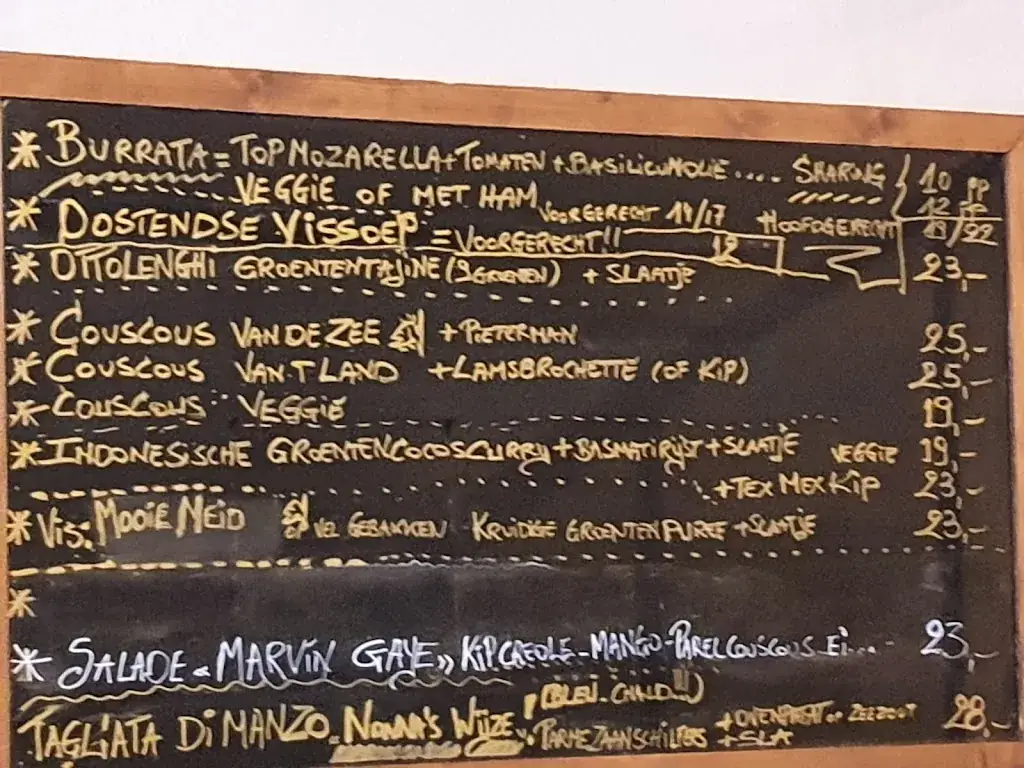 * BURRATA = TOPMOZARELLA + TOMATEN + BASILICUMOLIE .... SHARING 10 PP
VEGGIE OF MET HAM 12 PP
VOORGERECHT 14/17 HOOFDGERECHT 19/22
* OOSTENDSE VISSOEP = VOORGERECHT!! 12
* OTTOLENGHI GROENTENTAJINE (9 GROENEN) + SLAATJE 23,-
* COUSCOUS VAN DE ZEE + PIETERMAN 25,-
* COUSCOUS VAN T LAND + LAMSBROCHETTE (OF KIP) 25,-
* COUSCOUS VEGGIE 19,-
* INDONESISCHE GROENTENCOCOSCURRY + BASMATIRIJST + SLAATJE VEGGIE 19,-
+ TEX MEX KIP 23,-
* VIS: MOOIE NEID OP VEL GEBAKKEN KRUIDIGE GROENTENPUREE + SLAATJE 23,-
*
* SALADE « MARVIN GAYE » KIP CREOLE - MANGO - PARELCOUSCOUS EI... 23,-
(BLEU - CHAUD !!!)
TAGLIATA DI MANZO - NONNA'S WIJZE, PARMEZAANSCHILFERS + OVENFRIET OF ZEEZOUT 28,-
+ SLA